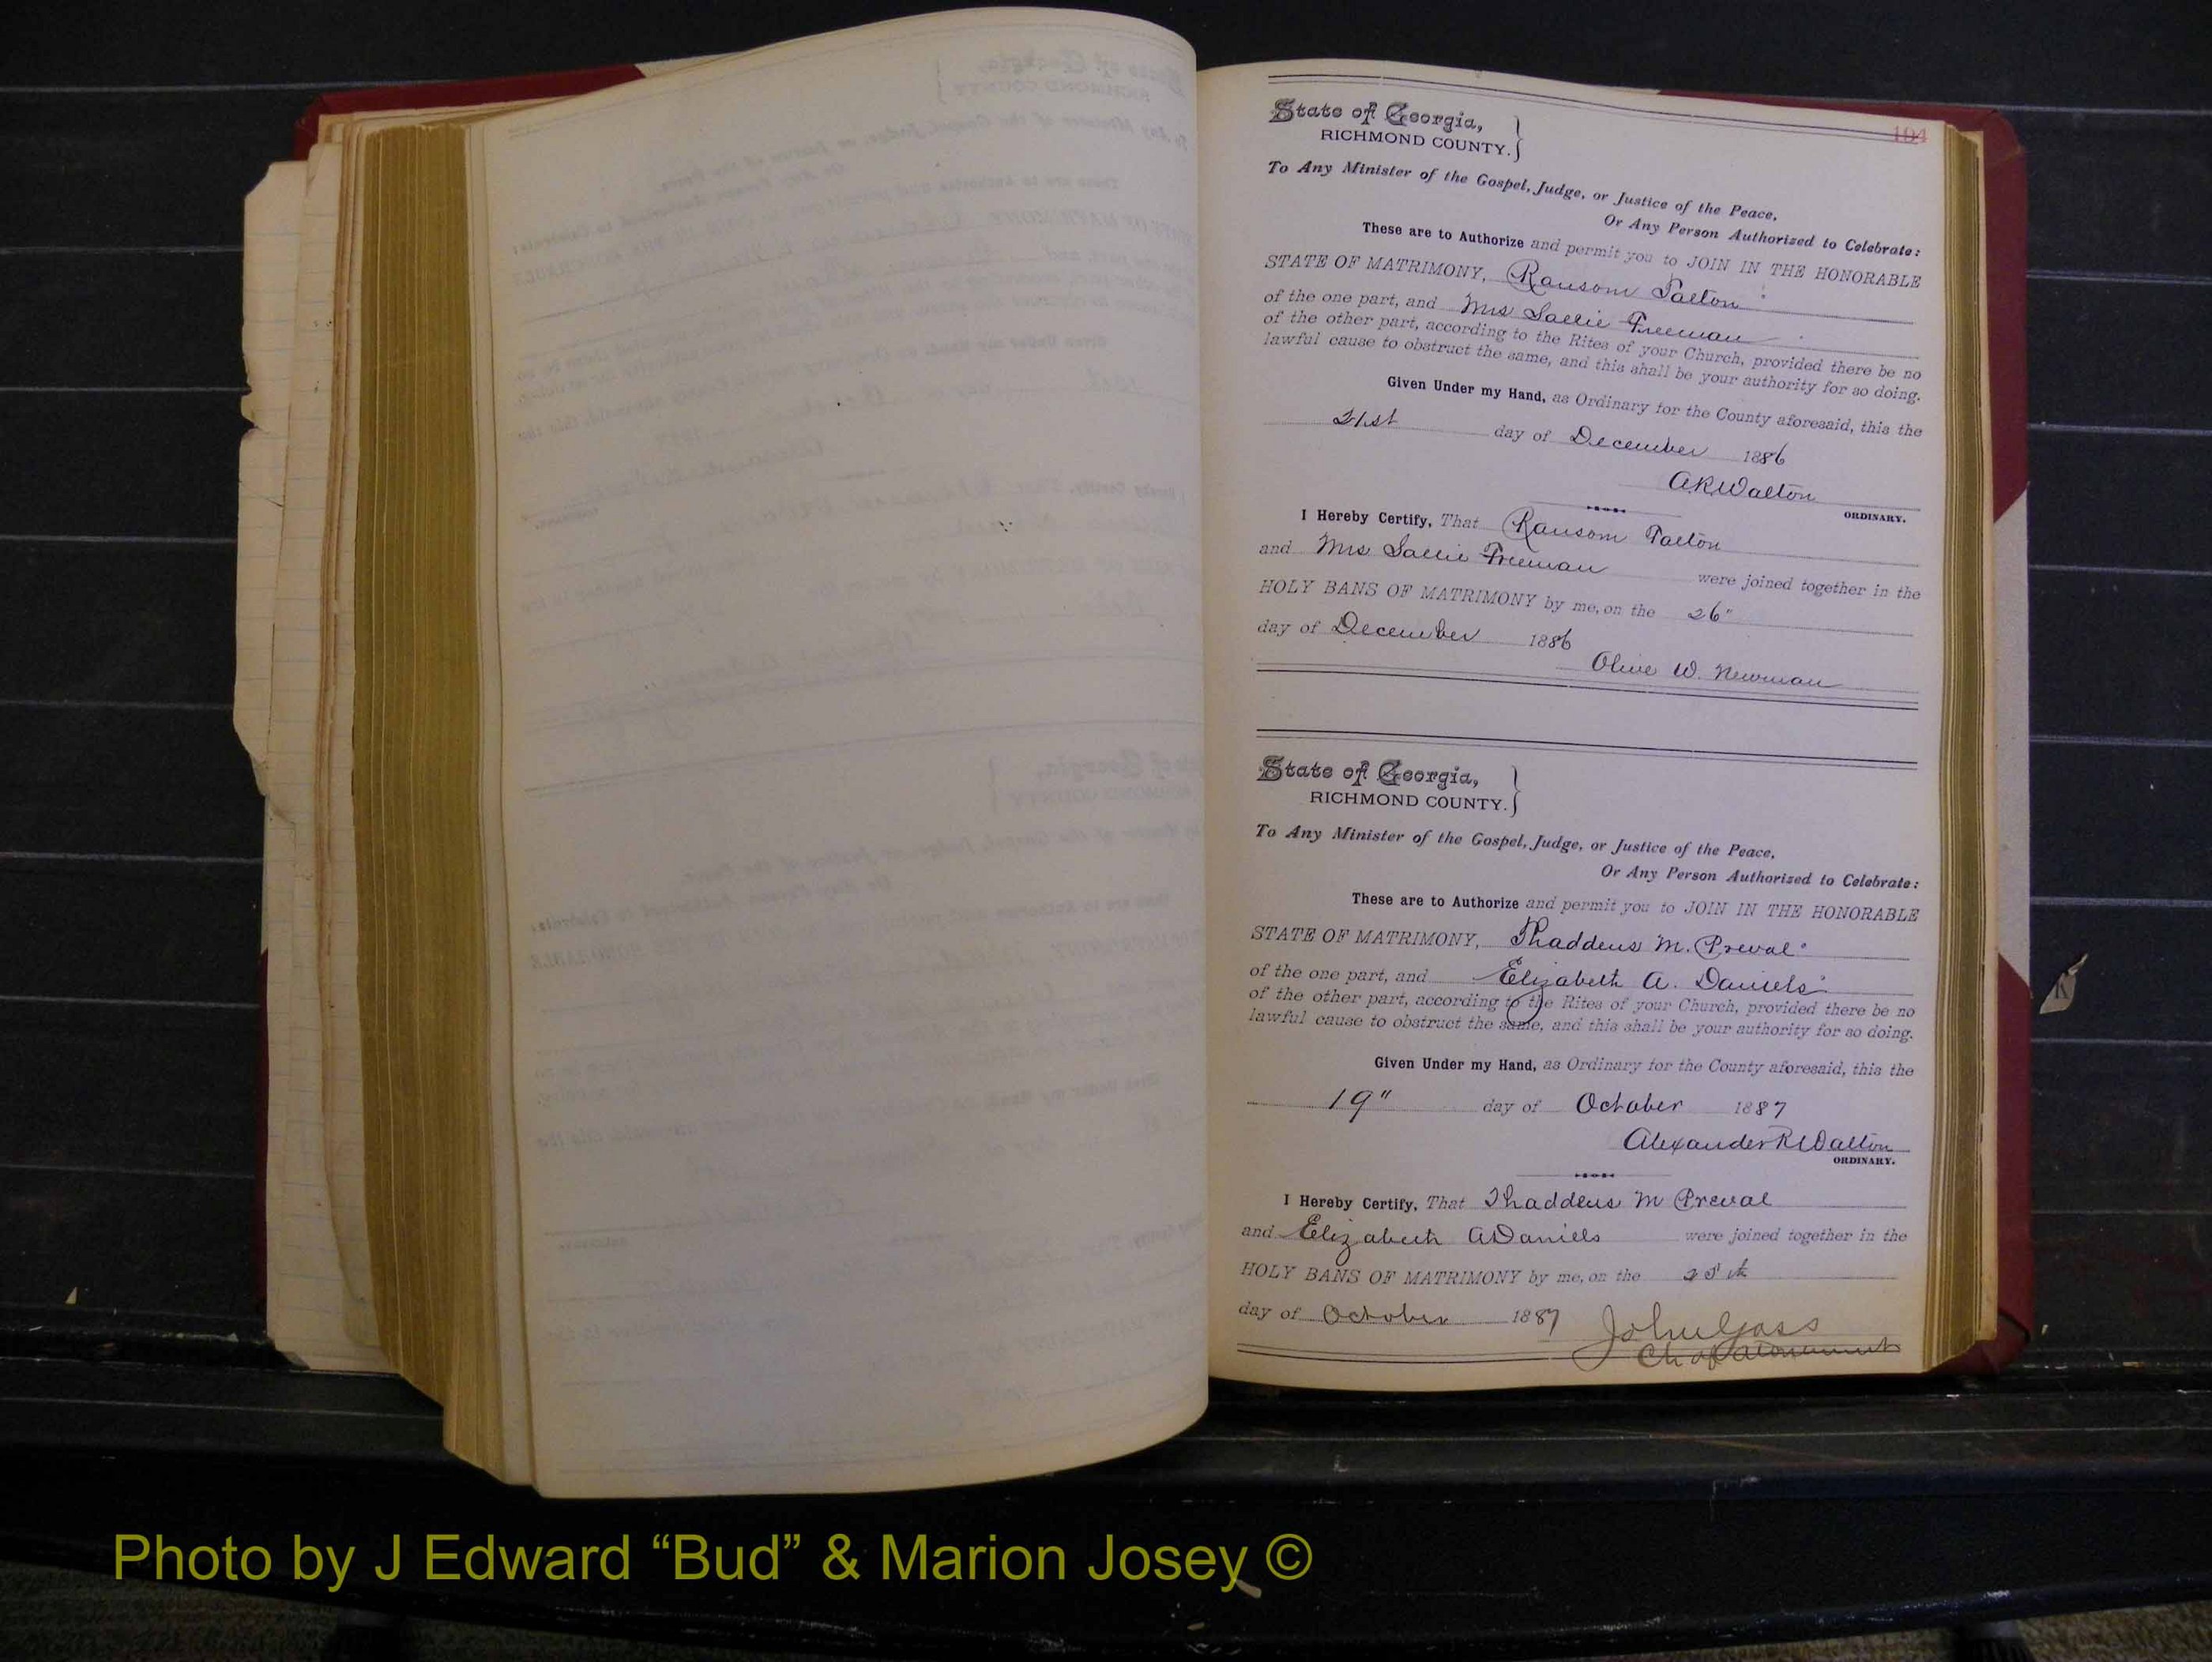 104
State of Georgia,
RICHMOND COUNTY.
To Any Minister of the Gospel, Judge, or Justice of the Peace,
Or Any Person Authorized to Celebrate:
These are to Authorize and permit you to JOIN IN THE HONORABLE
STATE OF MATRIMONY, Ransom Talton
of the one part, and Mrs Sallie Freeman
of the other part, according to the Rites of your Church, provided there be no
lawful cause to obstruct the same, and this shall be your authority for so doing.
Given Under my Hand, as Ordinary for the County aforesaid, this the
21st day of December 1886
A.R.Walton
ORDINARY.
I Hereby Certify, That Ransom Talton
and Mrs Sallie Freeman were joined together in the
HOLY BANS OF MATRIMONY by me, on the 26"
day of December 1886
W. Newman
State of Georgia,
RICHMOND COUNTY.
To Any Minister of the Gospel, Judge, or Justice of the Peace,
Or Any Person Authorized to Celebrate:
These are to Authorize and permit you to JOIN IN THE HONORABLE
STATE OF MATRIMONY, Thaddeus M. Preval
of the one part, and Elizabeth A. Daniels
of the other part, according to the Rites of your Church, provided there be no
lawful cause to obstruct the same, and this shall be your authority for so doing.
Given Under my Hand, as Ordinary for the County aforesaid, this the
19" day of October 1887
Alexander R Walton
ORDINARY.
I Hereby Certify, That Thaddeus M Preval
and Elizabeth A Daniels were joined together in the
HOLY BANS OF MATRIMONY by me, on the
day of October 1887
John Gass
Ch of Atonement
Photo by J Edward “Bud” & Marion Josey ©